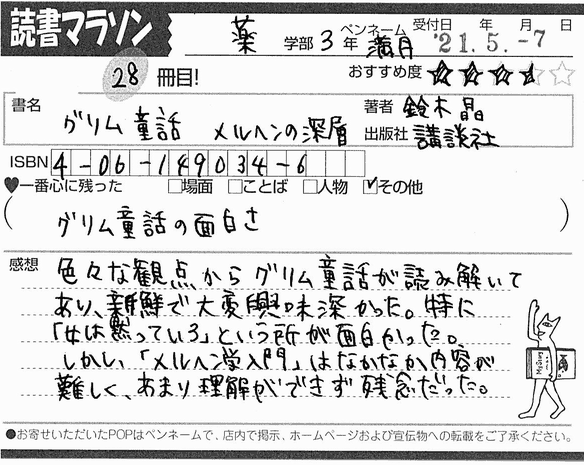 読書マラソン
薬 学部 3 年 ペンネーム 満月 受付日 年 月 日 '21.5.-7
28 冊目!
おすすめ度 ★★★★☆☆
書名 グリム童話 メルヘンの深層
著者 鈴木晶
出版社 講談社
ISBN 4-06-149034-6
♥一番心に残った □場面 □ことば □人物 ☑その他
( グリム童話の面白さ )
感想 色々な観点からグリム童話が読み解いて
あり、新鮮で大変興味深かった。特に
「女は黙っている」という所が面白かった。
しかし、「メルヘン学入門」はなかなか内容が
難しく、あまり理解ができず残念だった。
●お寄せいただいたPOPはペンネームで、店内で掲示、ホームページおよび宣伝物への転載をご了承ください。